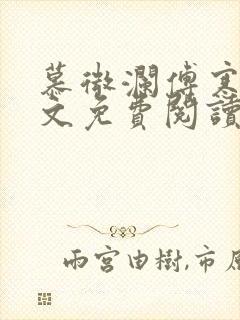 慕微瀾傅寒
文免費閱讀
雨宮由樹,市原